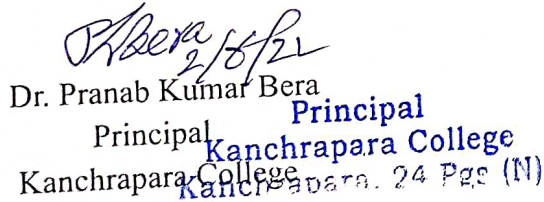 PKBera
2/6/22
Dr. Pranab Kumar Bera
Principal
Kanchrapara College
Principal
Kanchrapara College
Kanchrapara. 24 Pgs (N)